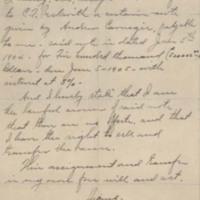 to C.T. Beckwith a certain note
given by Andrew Carnegie, payable
to me - said note is dated June 5th
1904. for five hundred thousand (500000)
Dollars - due June 5-1905 - with
interest at 5%.
And I hereby state that I am
the lawful owner of said note
that there are no offsets, and that
I have the right to sell and
transfer the same.
This assignment and transfer
is my own free will and act.
Signed.